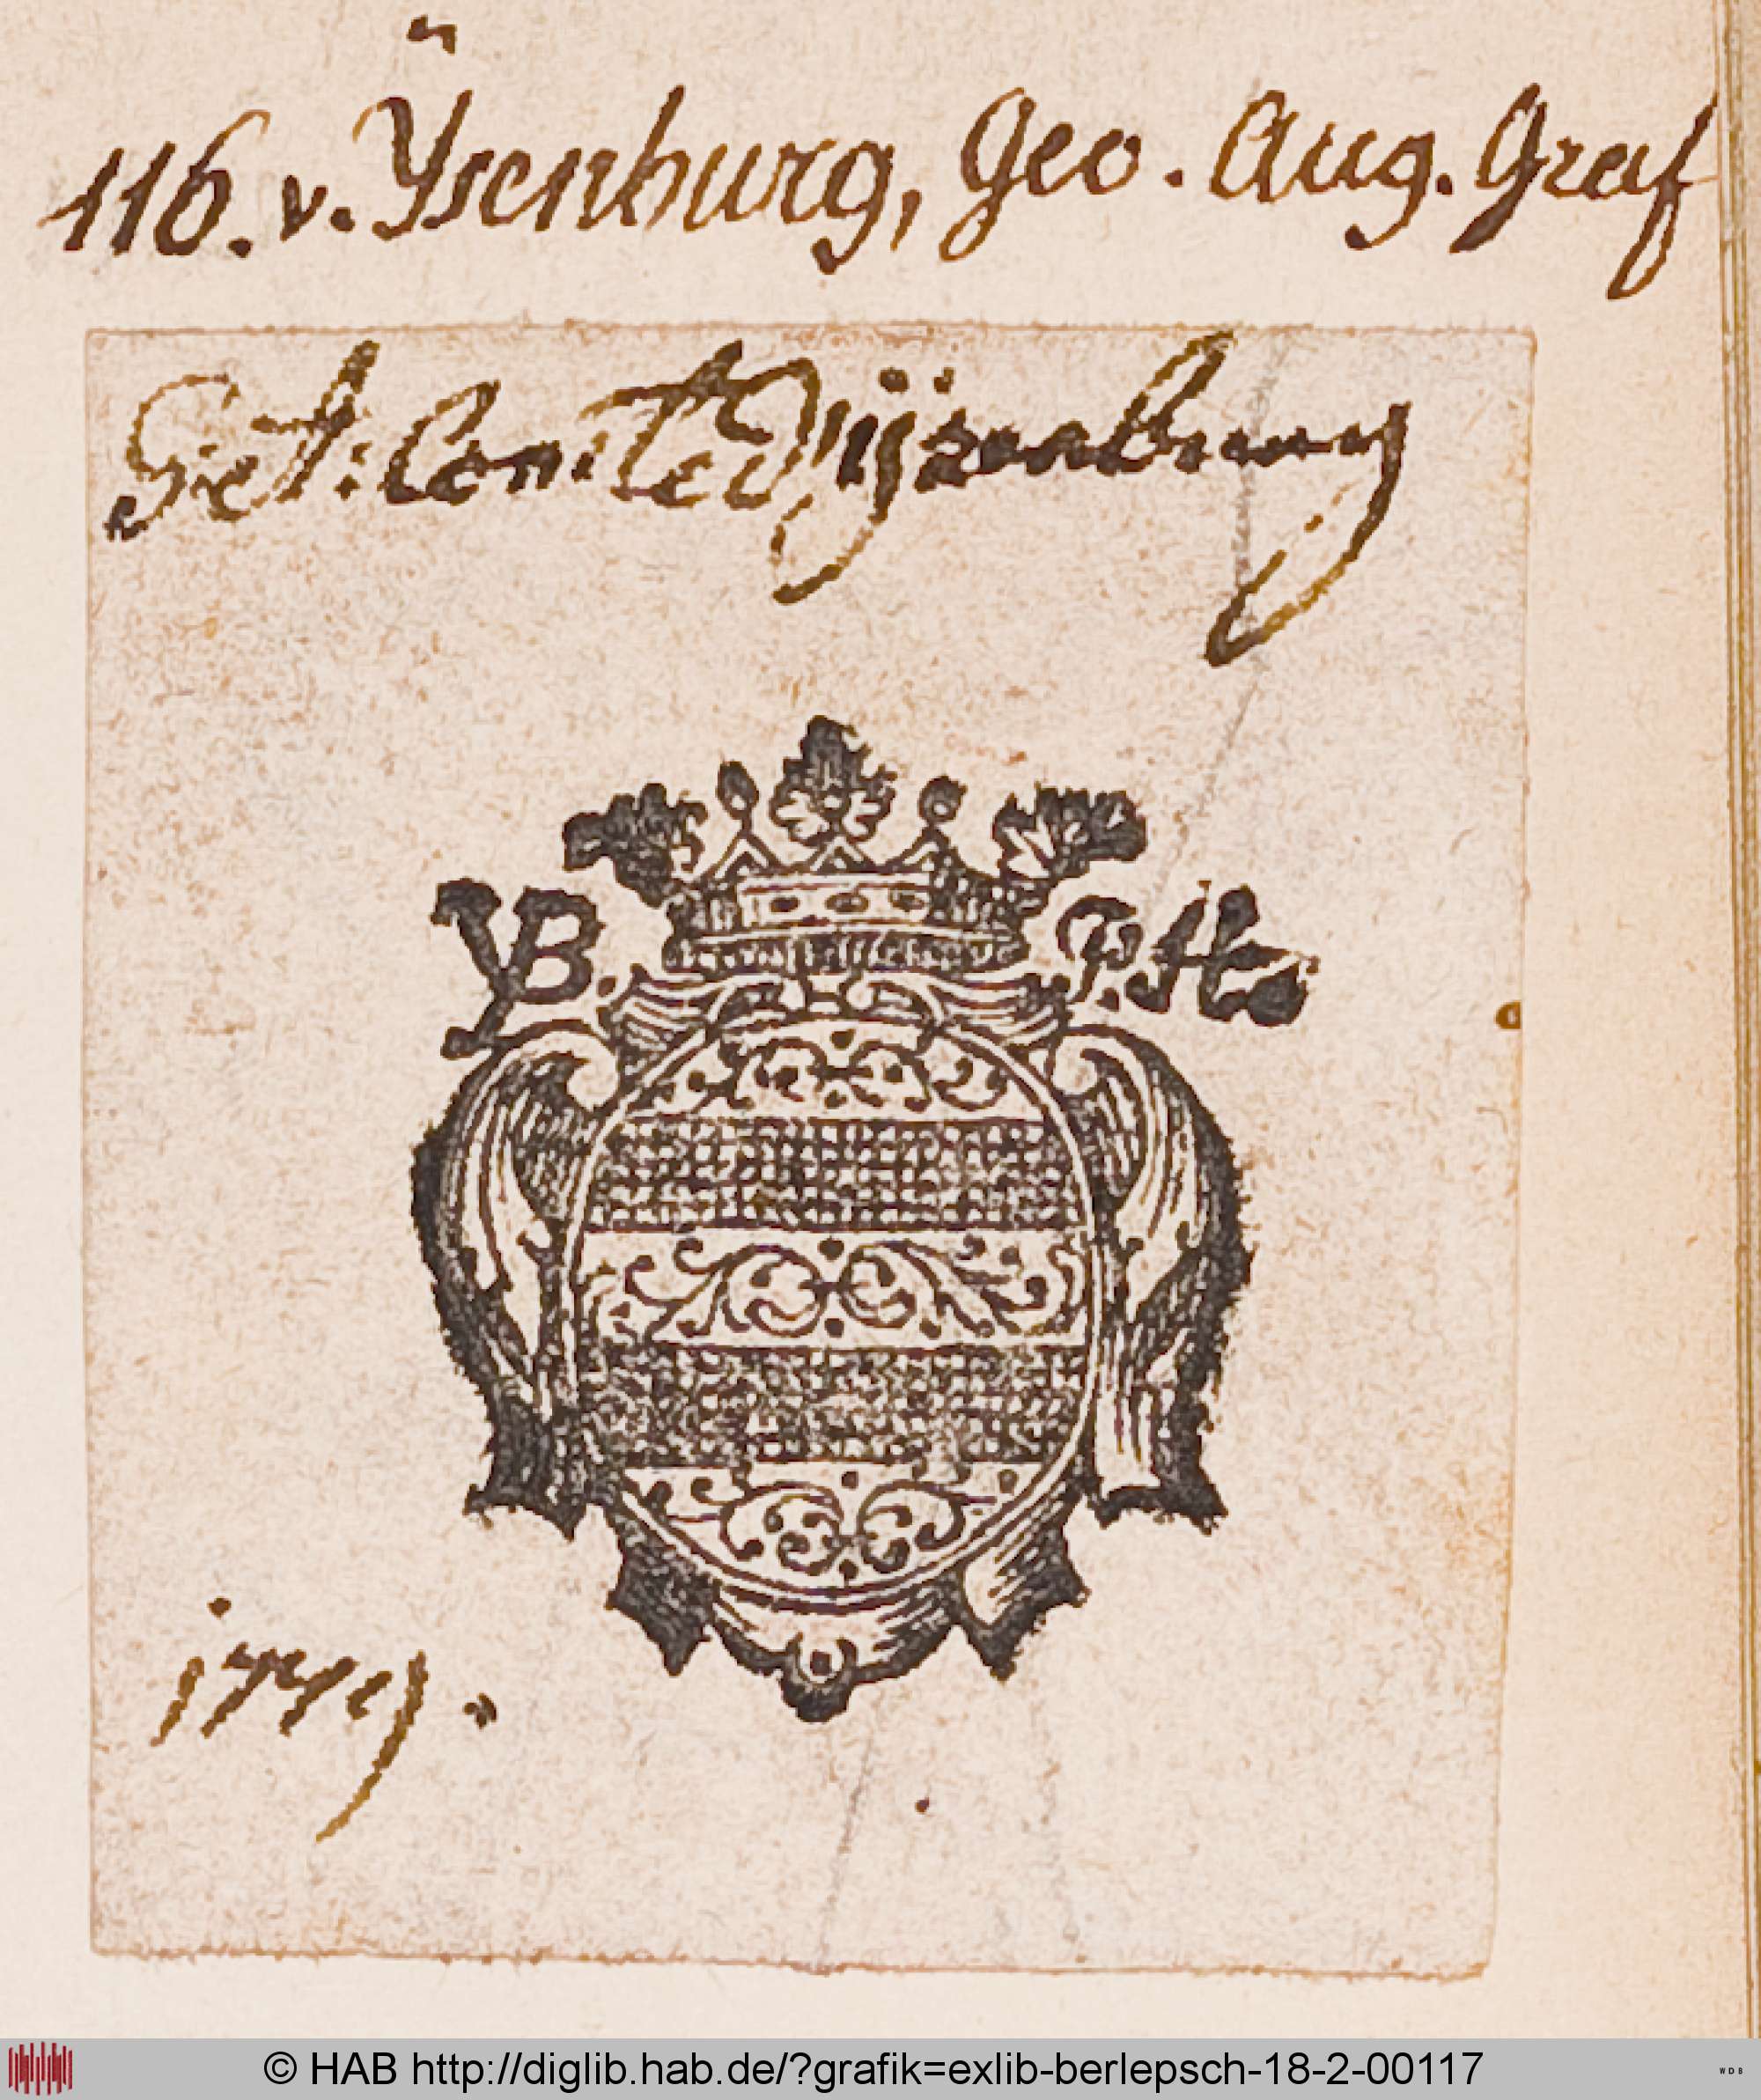 116. v. Ÿsenburg, Geo. Aug. Graf
Comte d'ÿsenburg
YB. P. H
1749.
© HAB http://diglib.hab.de/?grafik=exlib-berlepsch-18-2-00117
WDB